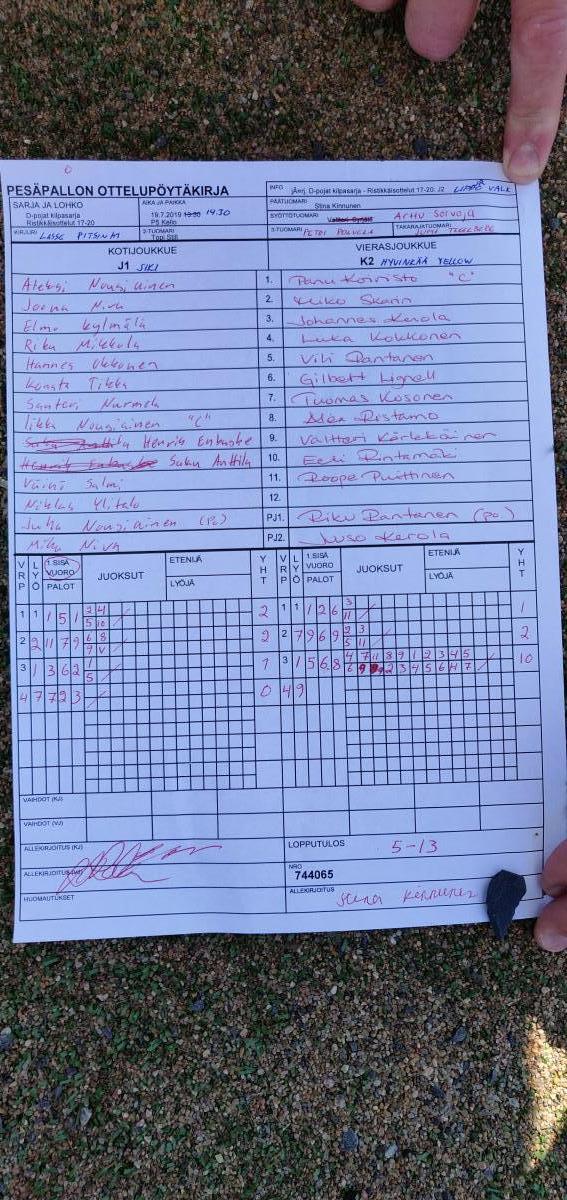 PESÄPALLON OTTELUPÖYTÄKIRJA
INFO jÄrrj. D-pojat kilpasarja - Ristikkäisottelut 17-20: J2
SARJA JA LOHKO
D-pojat kilpasarja
Ristikkäisottelut 17-20
AIKA JA PAIKKA
19.7.2019 14.30
P5 Kello
PÄÄTUOMARI Stina Kinnunen
SYÖTTÖTUOMARI Arttu Sorvoja
KIRJURI LASSE PITSINKI
2-TUOMARI Topi Still
3-TUOMARI PETRI
TAKARAJATUOMARI
KOTIJOUKKUE VIERASJOUKKUE
J1 SiKi K2 HYVINKÄÄ YELLOW
Aleksi Nousiainen 1. Panu Koivisto "C"
Joona Niva 2. Skarin
Elmo Kylmälä 3. Johannes Kerola
Riku Mikkola 4. Luka Kokkonen
Hannes Ukkonen 5. Vili Rantanen
Konsta Tikka 6. Gilbert Lignell
Santeri Nurmela 7. Tuomas Kosonen
Iikka Nousiainen "C" 8. Ristamo
Henrik 9. Valtteri
Saku Anttila 10. Eeli Rintamäki
Väinö Salmi 11. Roope Puittinen
Niklas Ylitalo 12.
Juha Nousiainen (PJ) PJ1. Riku Rantanen (PJ)
Mika Niva PJ2. Juuso Kerola
VRP LYÖ 1.SISÄ VUORO PALOT JUOKSUT ETENIJÄ LYÖJÄ YHT VRP LYÖ 1.SISÄ VUORO PALOT JUOKSUT ETENIJÄ LYÖJÄ YHT
1 1 1 5 1 3 4 / 2 1 1 1 2 6 3 / 1
5 10 11
2 2 11 7 9 6 8 / 2 2 7 9 6 9 2 3 / 2
9 V 5 11
3 1 3 6 2 1 / 1 3 1 5 6 8 4 7 11 8 9 1 2 3 4 5 10
5 2 3 4 5 6 7 /
4 7 7 2 3 / 0 4 9
VAIHDOT (KJ)
VAIHDOT (VJ)
ALLEKIRJOITUS (KJ) LOPPUTULOS 5-13
ALLEKIRJOITUS (VJ) NRO
744065
HUOMAUTUKSET ALLEKIRJOITUS Stina Kinnunen